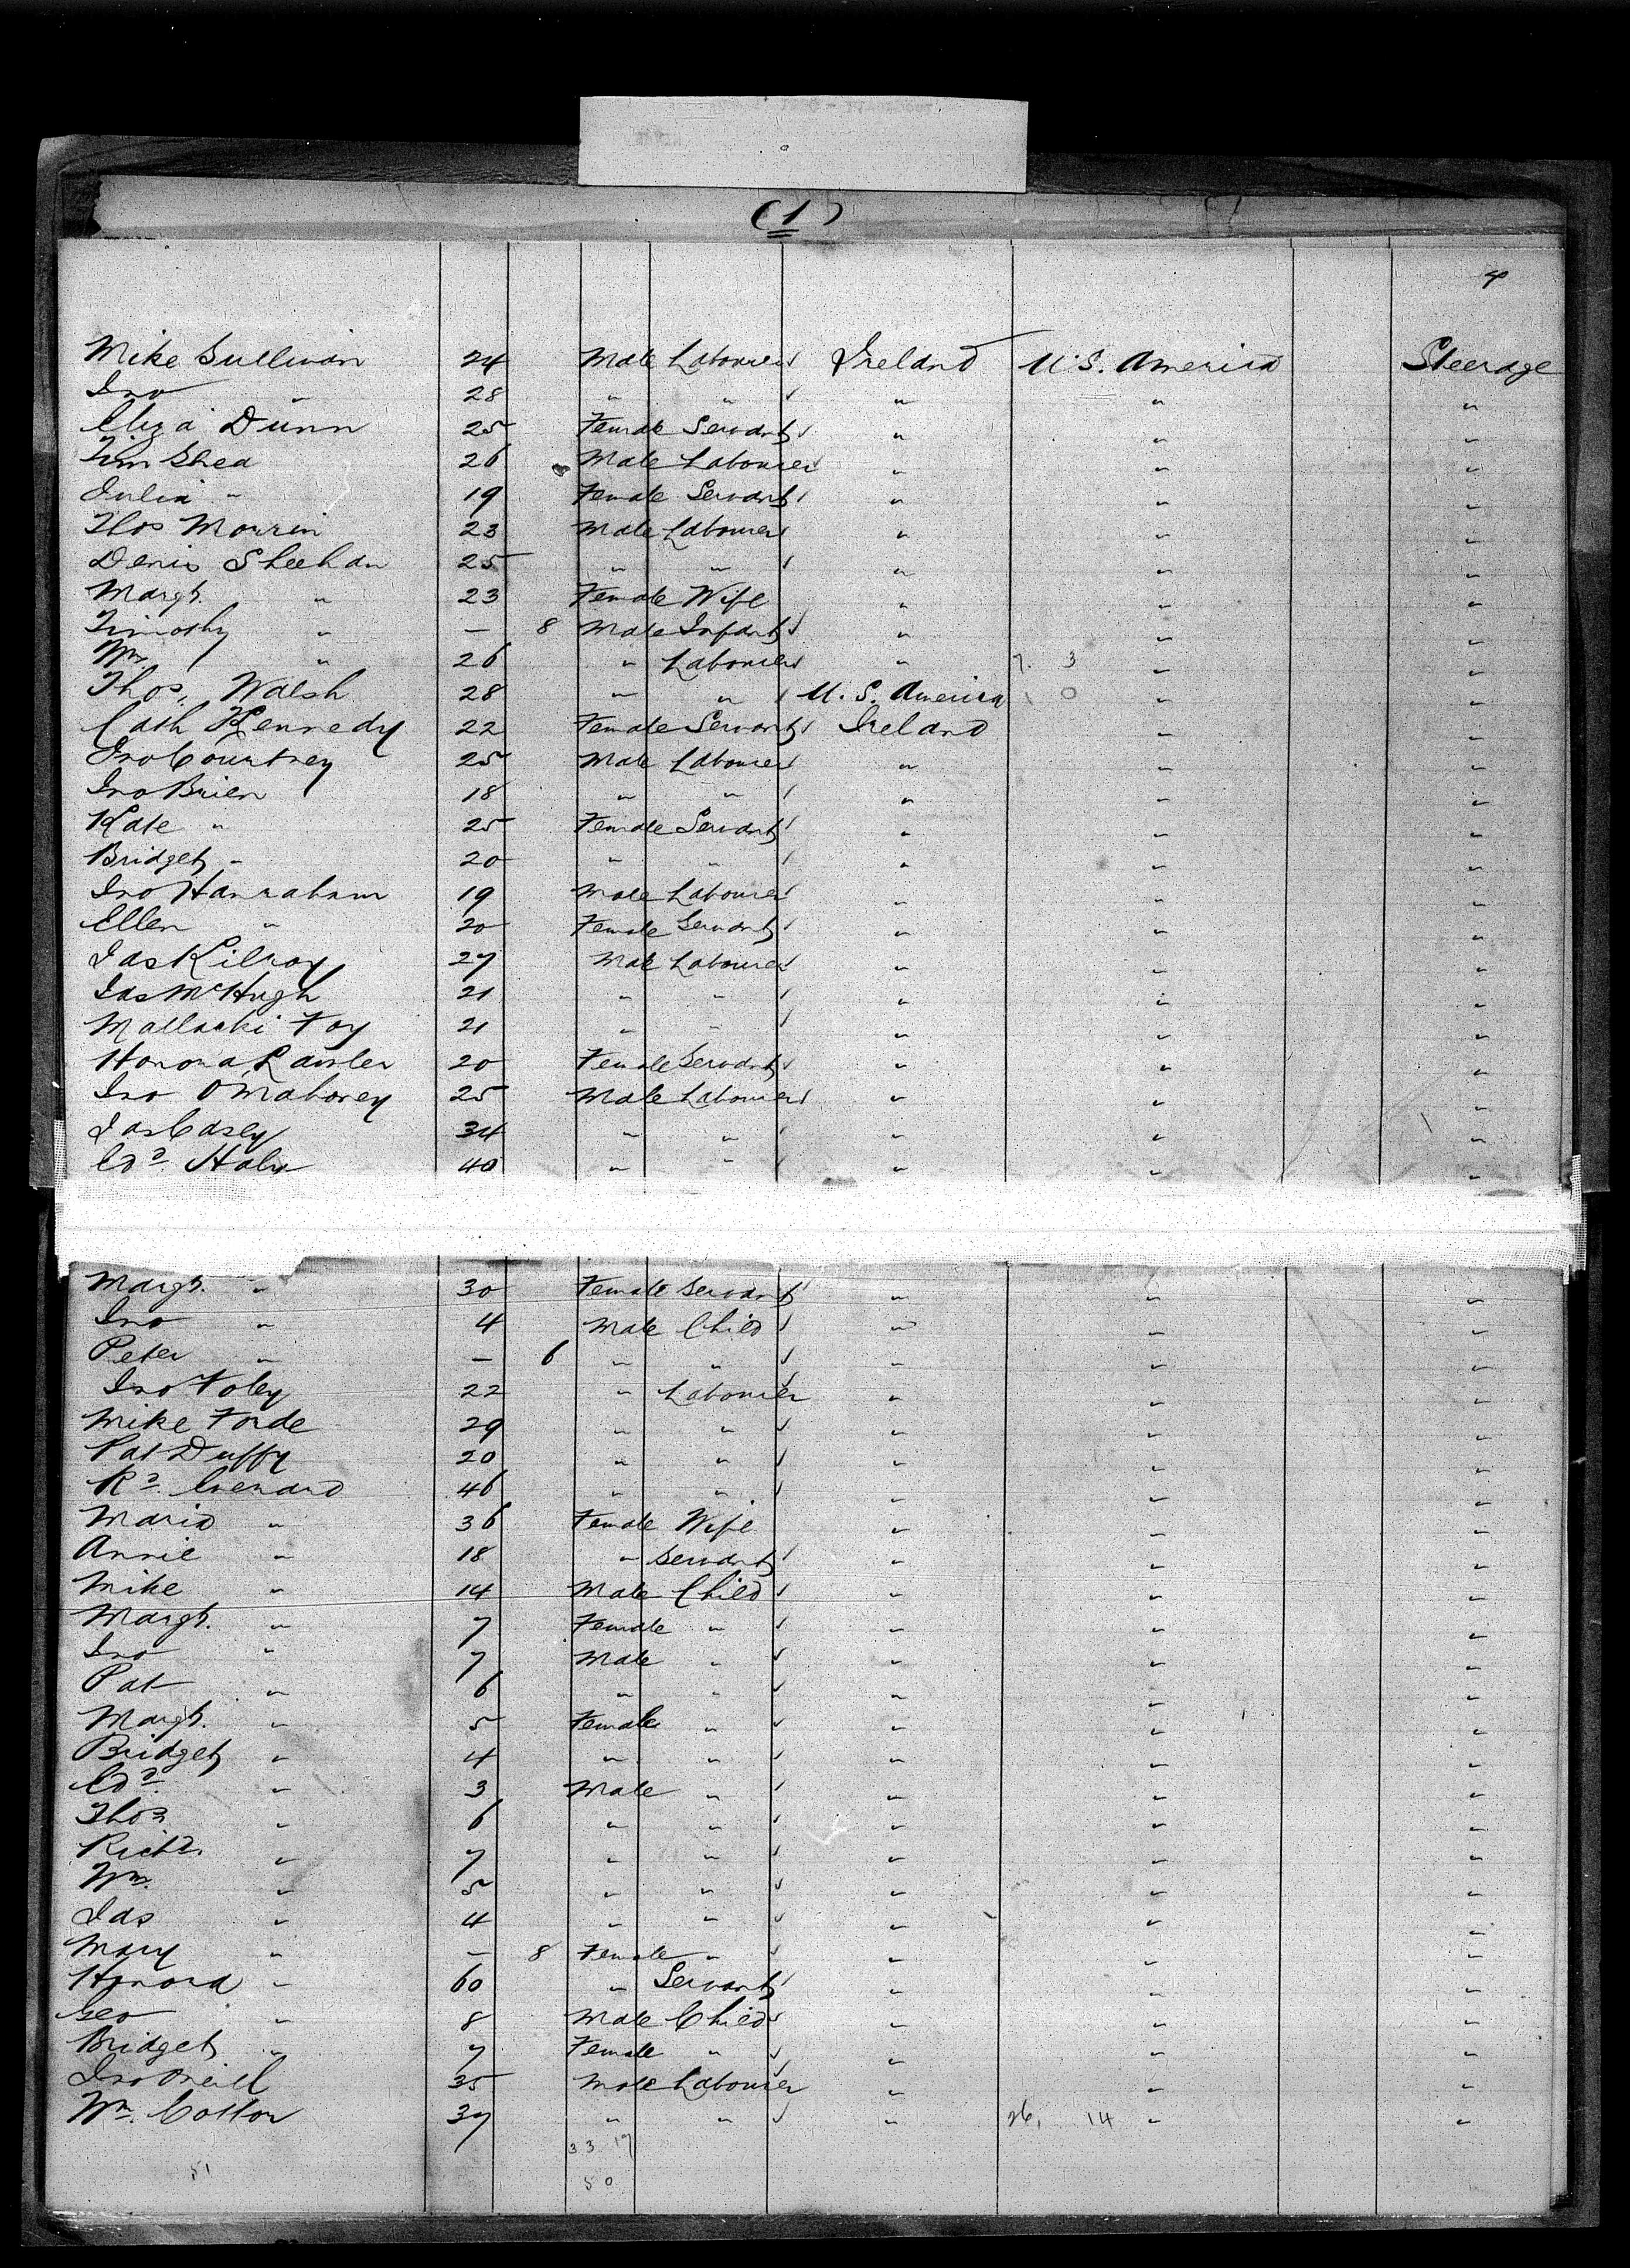 (1)
4
Mike Sullivan 24 Male Labourer Ireland U.S. America Steerage
Jno " 28 " " " " "
Eliza Dunn 25 Female Servant " " "
Tim Shea 26 Male Labourer " " "
Julia " 19 Female Servant " " "
Thos Morrin 23 Male Labourer " " "
Denis Sheehan 25 " " " " "
Margt. " 23 Female Wife " " "
Timothy " — 8 Male Infant " " "
Wm. " 26 " Labourer " 7. 3 " "
Thos. Walsh 28 " " U.S. America 0 " "
Cath Kennedy 22 Female Servant Ireland " "
Jno Courtney 25 Male Labourer " " "
Jno Brien 18 " " " " "
Kate " 25 Female Servant " " "
Bridget " 20 " " " " "
Jno Hanraham 19 Male Labourer " " "
Ellen " 20 Female Servant " " "
Jas Kilroy 27 Male Labourer " " "
Jas McHugh 21 " " " " "
Mallacki Foy 21 " " " " "
Honora Lawler 20 Female Servant " " "
Jno O Mahoney 25 Male Labourer " " "
Jas Casey 34 " " " " "
Edd. 40 " " " " "
Margt. " 30 Female Servant " " "
Jno " 4 Male Child " " "
Peter " — 6 " " " " "
Jno Foley 22 " Labourer " " "
Mike Forde 29 " " " " "
Pat Duffy 20 " " " " "
Rd. 46 " " " " "
Maria " 36 Female Wife " " "
Annie " 18 " Servant " " "
Mike " 14 Male Child " " "
Margt. " 7 Female " " " "
Jno " 7 Male " " " "
Pat " 6 " " " " "
Margt. " 5 Female " " " "
Bridget " 4 " " " " "
Edd. " 3 Male " " " "
Thos. " 6 " " " " "
Richd. " 7 " " " " "
Wm. " 5 " " " " "
Jas " 4 " " " " "
Mary " — 8 Female " " " "
Honora " 60 " Servant " " "
Geo " 8 Male Child " " "
Bridget " 7 Female " " " "
Jno Oneill 35 Male Labourer " " "
Wm. Cotton 37 " " " 26, 14 " "
33 17
51 50